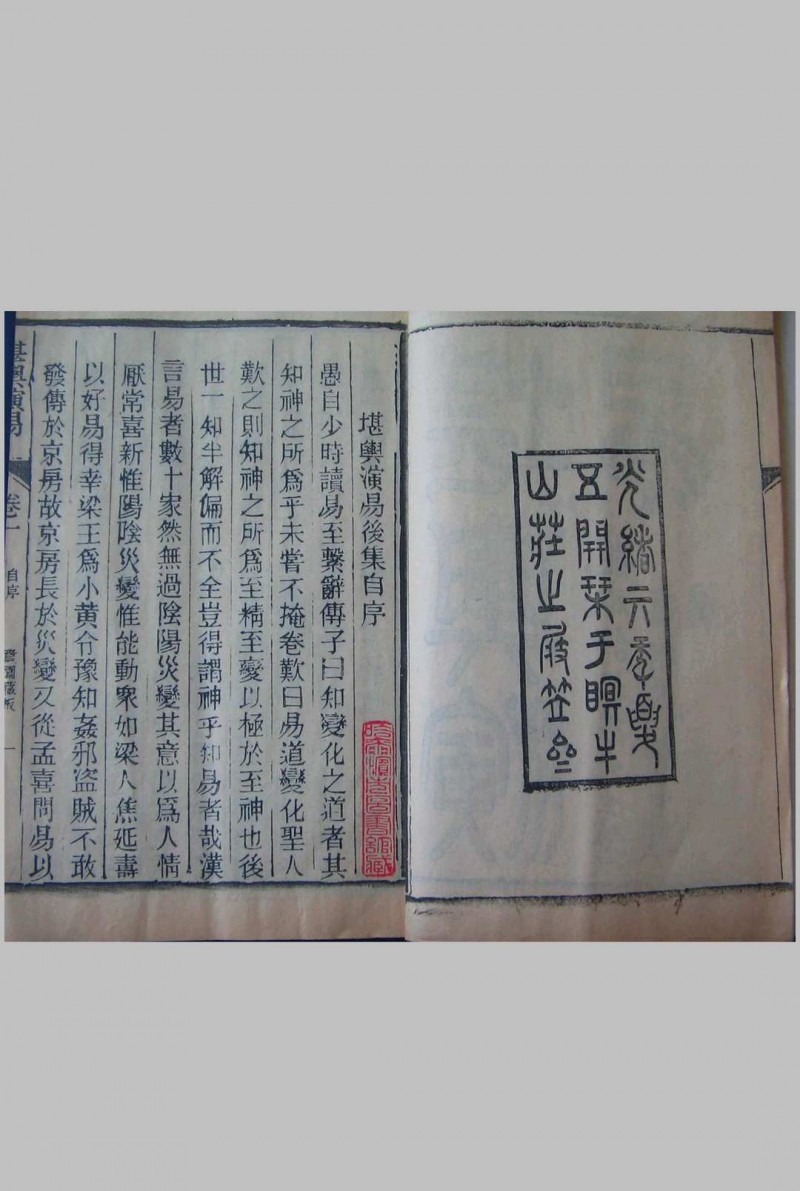 光緒六年
五開栞于瞑牛
山莊之
堪輿演易後集自序
愚自少時讀易至繫辭傳子曰知變化之道者其
知神之所爲乎未嘗不掩卷歎曰易道變化聖人
歎之則知神之所爲至精至變以極於至神也後
世一知半解偏而不全豈得謂神乎知易者哉漢
言易者數十家然無過陰陽災變其意以爲人情
厭常喜新惟陽陰災變惟能動衆如梁人焦延壽
以好易得幸梁王爲小黃令豫知姦邪盜賊不敢
發傳於京房故京房長於災變又從孟喜問易以
堪輿演易 卷一 自序 藏板 一